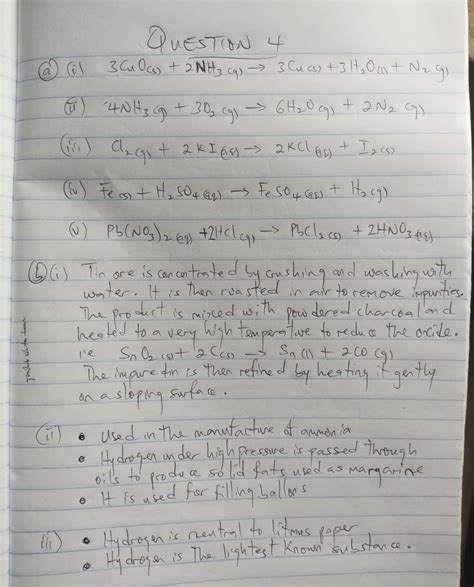 QUESTION 4
(a) (i) 3CuO(s) + 2NH3(g) → 3Cu(s) + 3H2O(l) + N2(g)
(ii) 4NH3(g) + 3O2(g) → 6H2O(g) + 2N2(g)
(iii) Cl2(g) + 2KI(aq) → 2KCl(aq) + I2(s)
(iv) Fe(s) + H2SO4(aq) → FeSO4(aq) + H2(g)
(v) Pb(NO3)2(aq) + 2HCl(g) → PbCl2(s) + 2HNO3(aq)
(b) (i) Tin ore is concentrated by crushing and washing with
water. It is then roasted in air to remove impurities.
The product is mixed with powdered charcoal and
heated to a very high temperature to reduce the oxide.
i.e SnO2(s) + 2C(s) → Sn(l) + 2CO(g)
The impure tin is then refined by heating it gently
on a sloping surface.
(ii) • Used in the manufacture of ammonia
• Hydrogen under high pressure is passed through
oils to produce solid fats used as margarine
• It is used for filling ballons
iii) • Hydrogen is neutral to litmus paper
• Hydrogen is The lightest known substance.